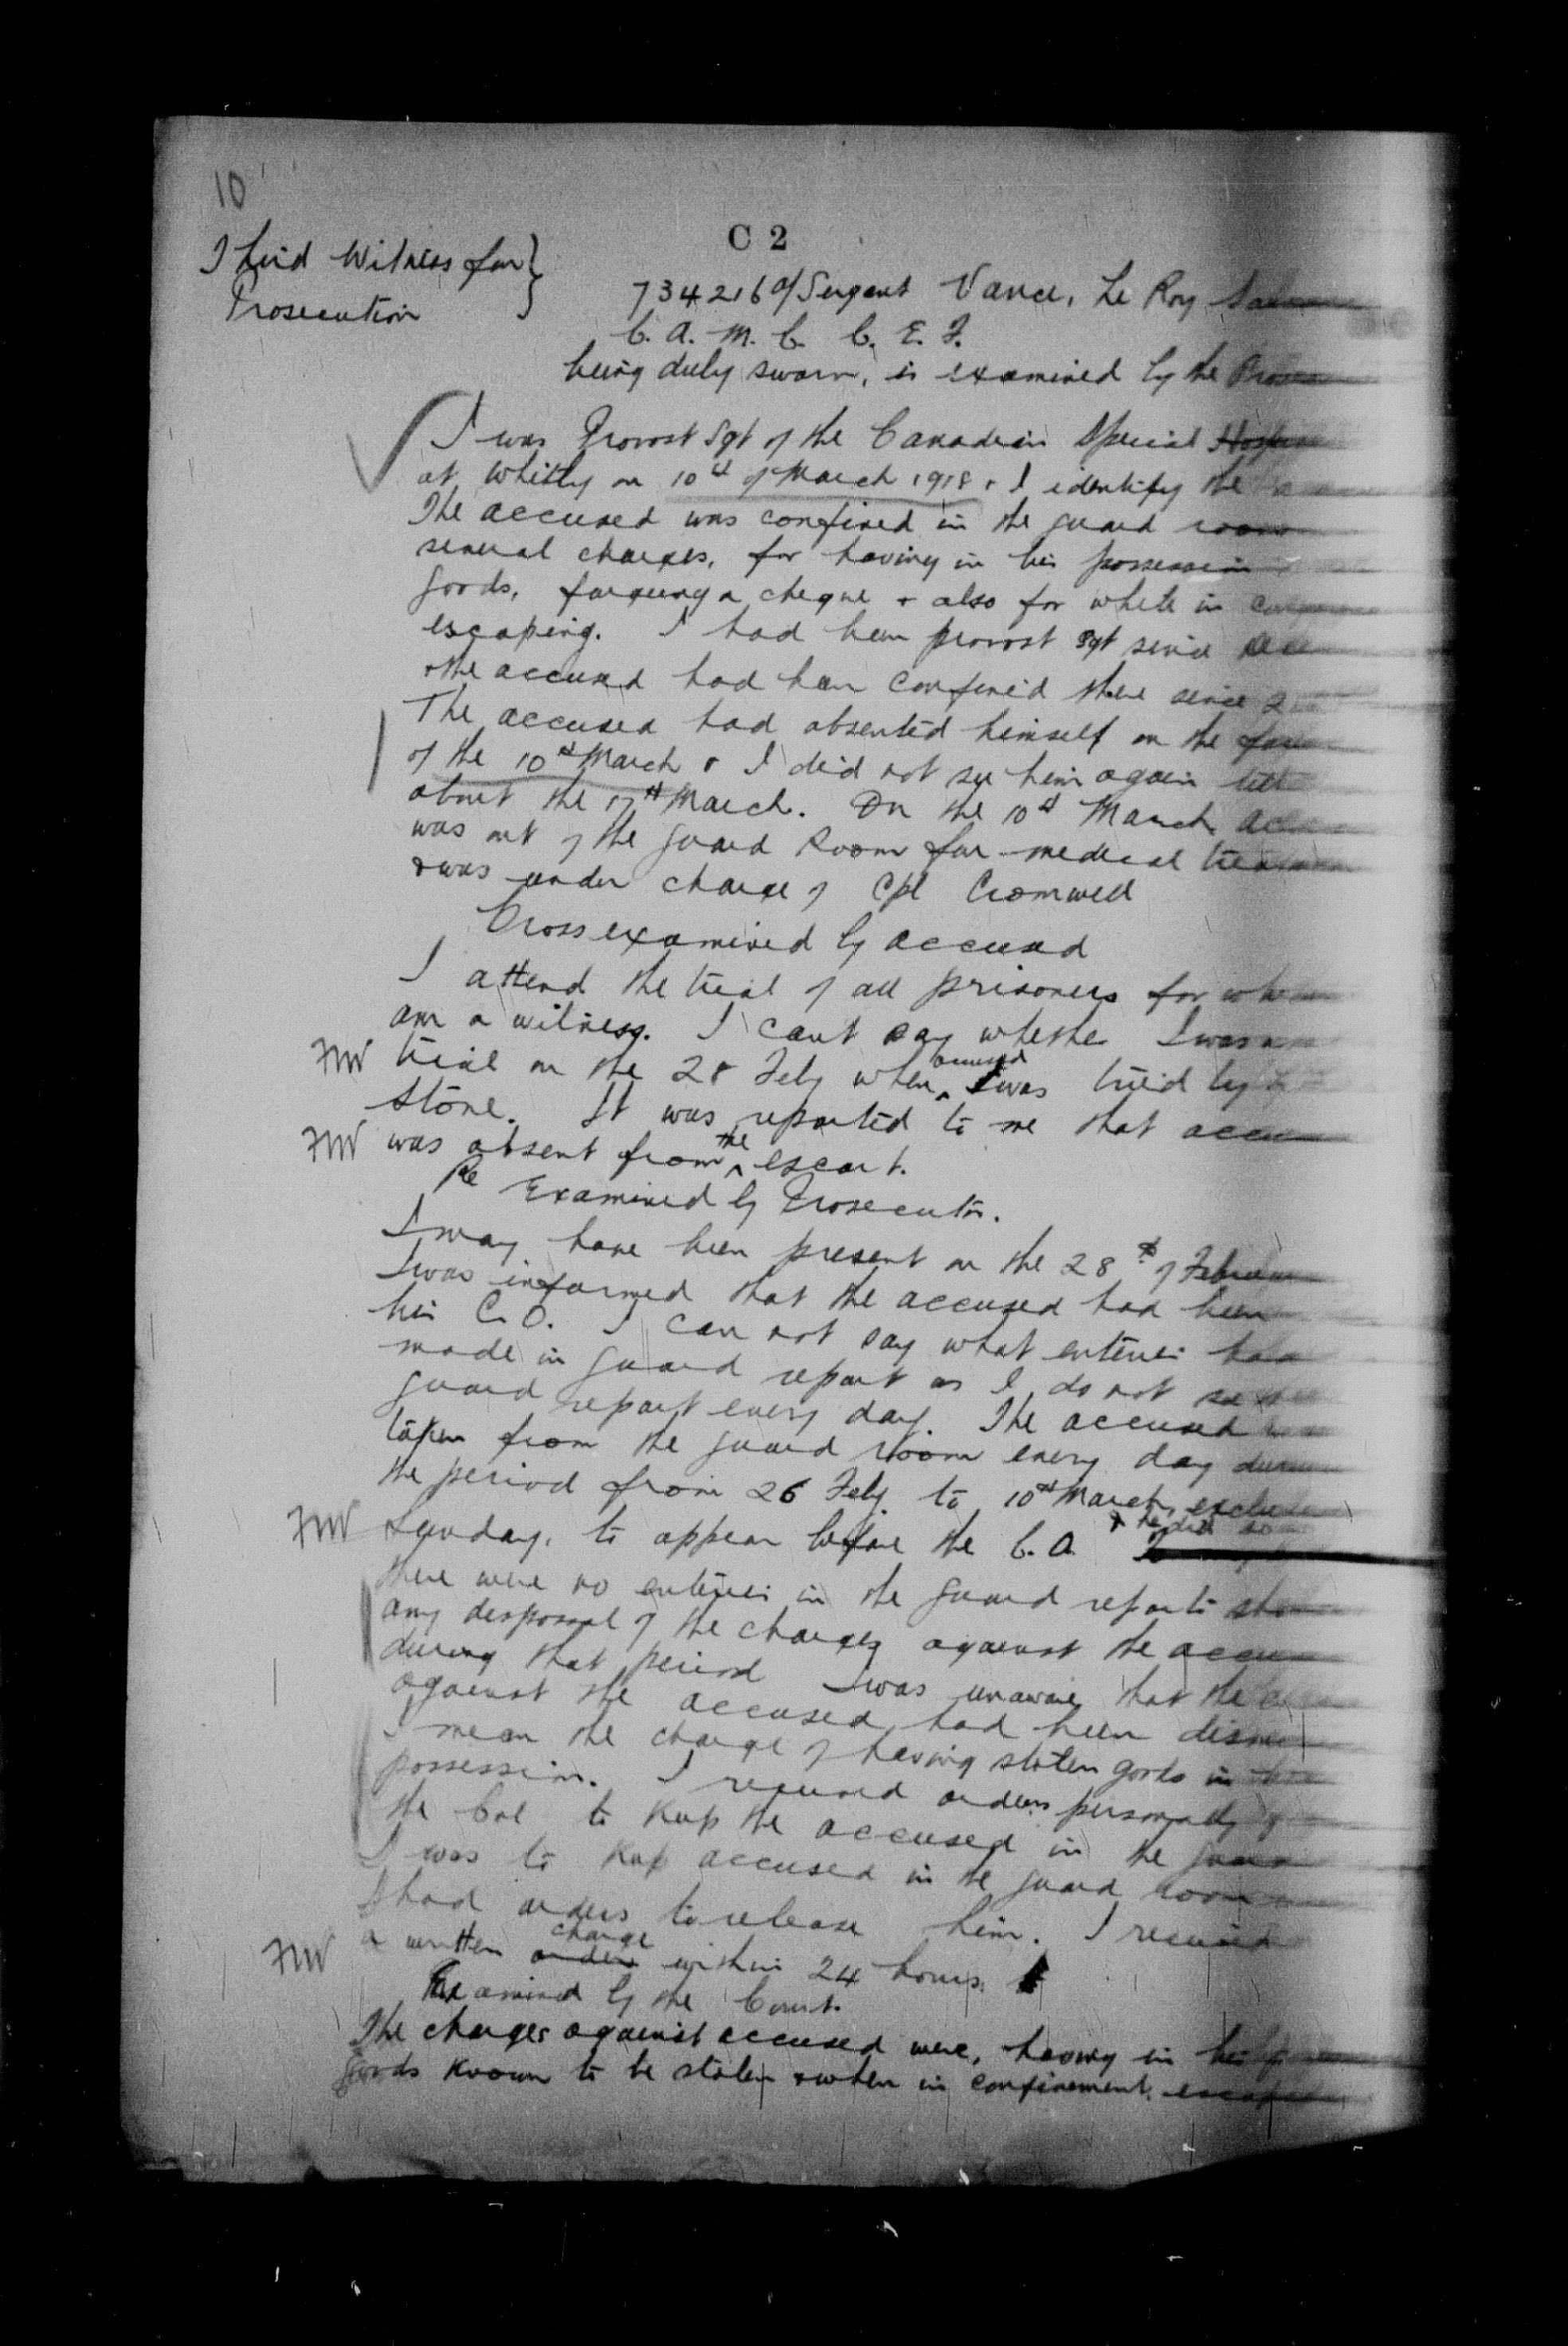 10
C 2
Third Witness for
Prosecution
734216 a/Sergent Vance, Le Roy
C. A. M. C. C. E. F.
being duly sworn, is examined by the
I was Provost Sgt of the Canadian Special
at Whitley on 10th of March 1918 & I identify the
The accused was confined in the guard room
several charges, for having in his possession
goods, forgeing a cheque & also for while in
escaping. I had been provost Sgt since
& the accused had been confined there since
The accused had absented himself on the
of the 10th March & I did not see him again till
about the 17th March. On the 10th March
was out of the guard Room for medical
& was under charge of Cpl Cromwell
Cross examined by accused
I attend the trial of all prisoners for
am a witness. I cant say whether I was
FMW trial on the 28 Feby when accused was tried by
Stone. It was reported to me that
FMW was absent from the escort.
Re Examined by Prosecutor.
I may have been present on the 28th of
I was informed that the accused had been
his C.O. I can not say what entries
made in guard report as I do not
guard report every day. The accused
taken from the guard room every day
the period from 26 Feby to 10th March,
FMW Sunday, to appear before the C.O. & he did so
there were no entries in the guard reports
any disposal of the charges against the
during that period I was unaware that the
against the accused had been
I mean the charge of having stolen goods in
possession. I received orders personally
the Col to keep the accused in the
I was to keep accused in the guard room
I had orders to release him. I received
FMW a written order charge within 24 hours.
Examined by the Court.
The charges against accused were, having in his
goods known to be stolen & when in confinement,